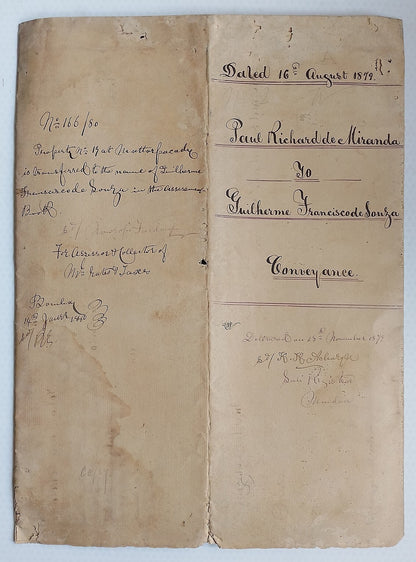 No 166/80
Property No 13 at
is transferred to the name of Guilherme
Francisco de Souza in the assessment
Book
Sd/
For Assessor & Collector of
Ml. Rates & Taxes
Bombay
Dated 16th August 1879.
Paul Richard de Miranda
To
Guilherme Francisco de Souza
Conveyance.
Delivered on 15th November 1879
Sd/ K. R.
Sub Registrar
Bandora